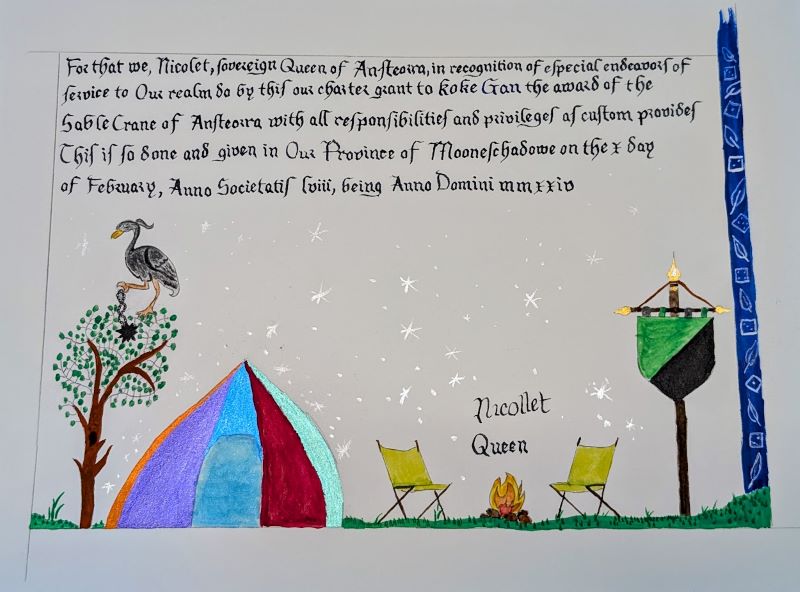 For that we, Nicolet, sovereign Queen of Ansteorra, in recognition of especial endeavors of
service to Our realm do by this our charter grant to Koke Gan the award of the
Sable Crane of Ansteorra with all responsibilities and privileges as custom provides
This is so done and given in Our Province of Mooneschadowe on the x day
of February, Anno Societatis lviii, being Anno Domini mmxxiv
Nicollet
Queen